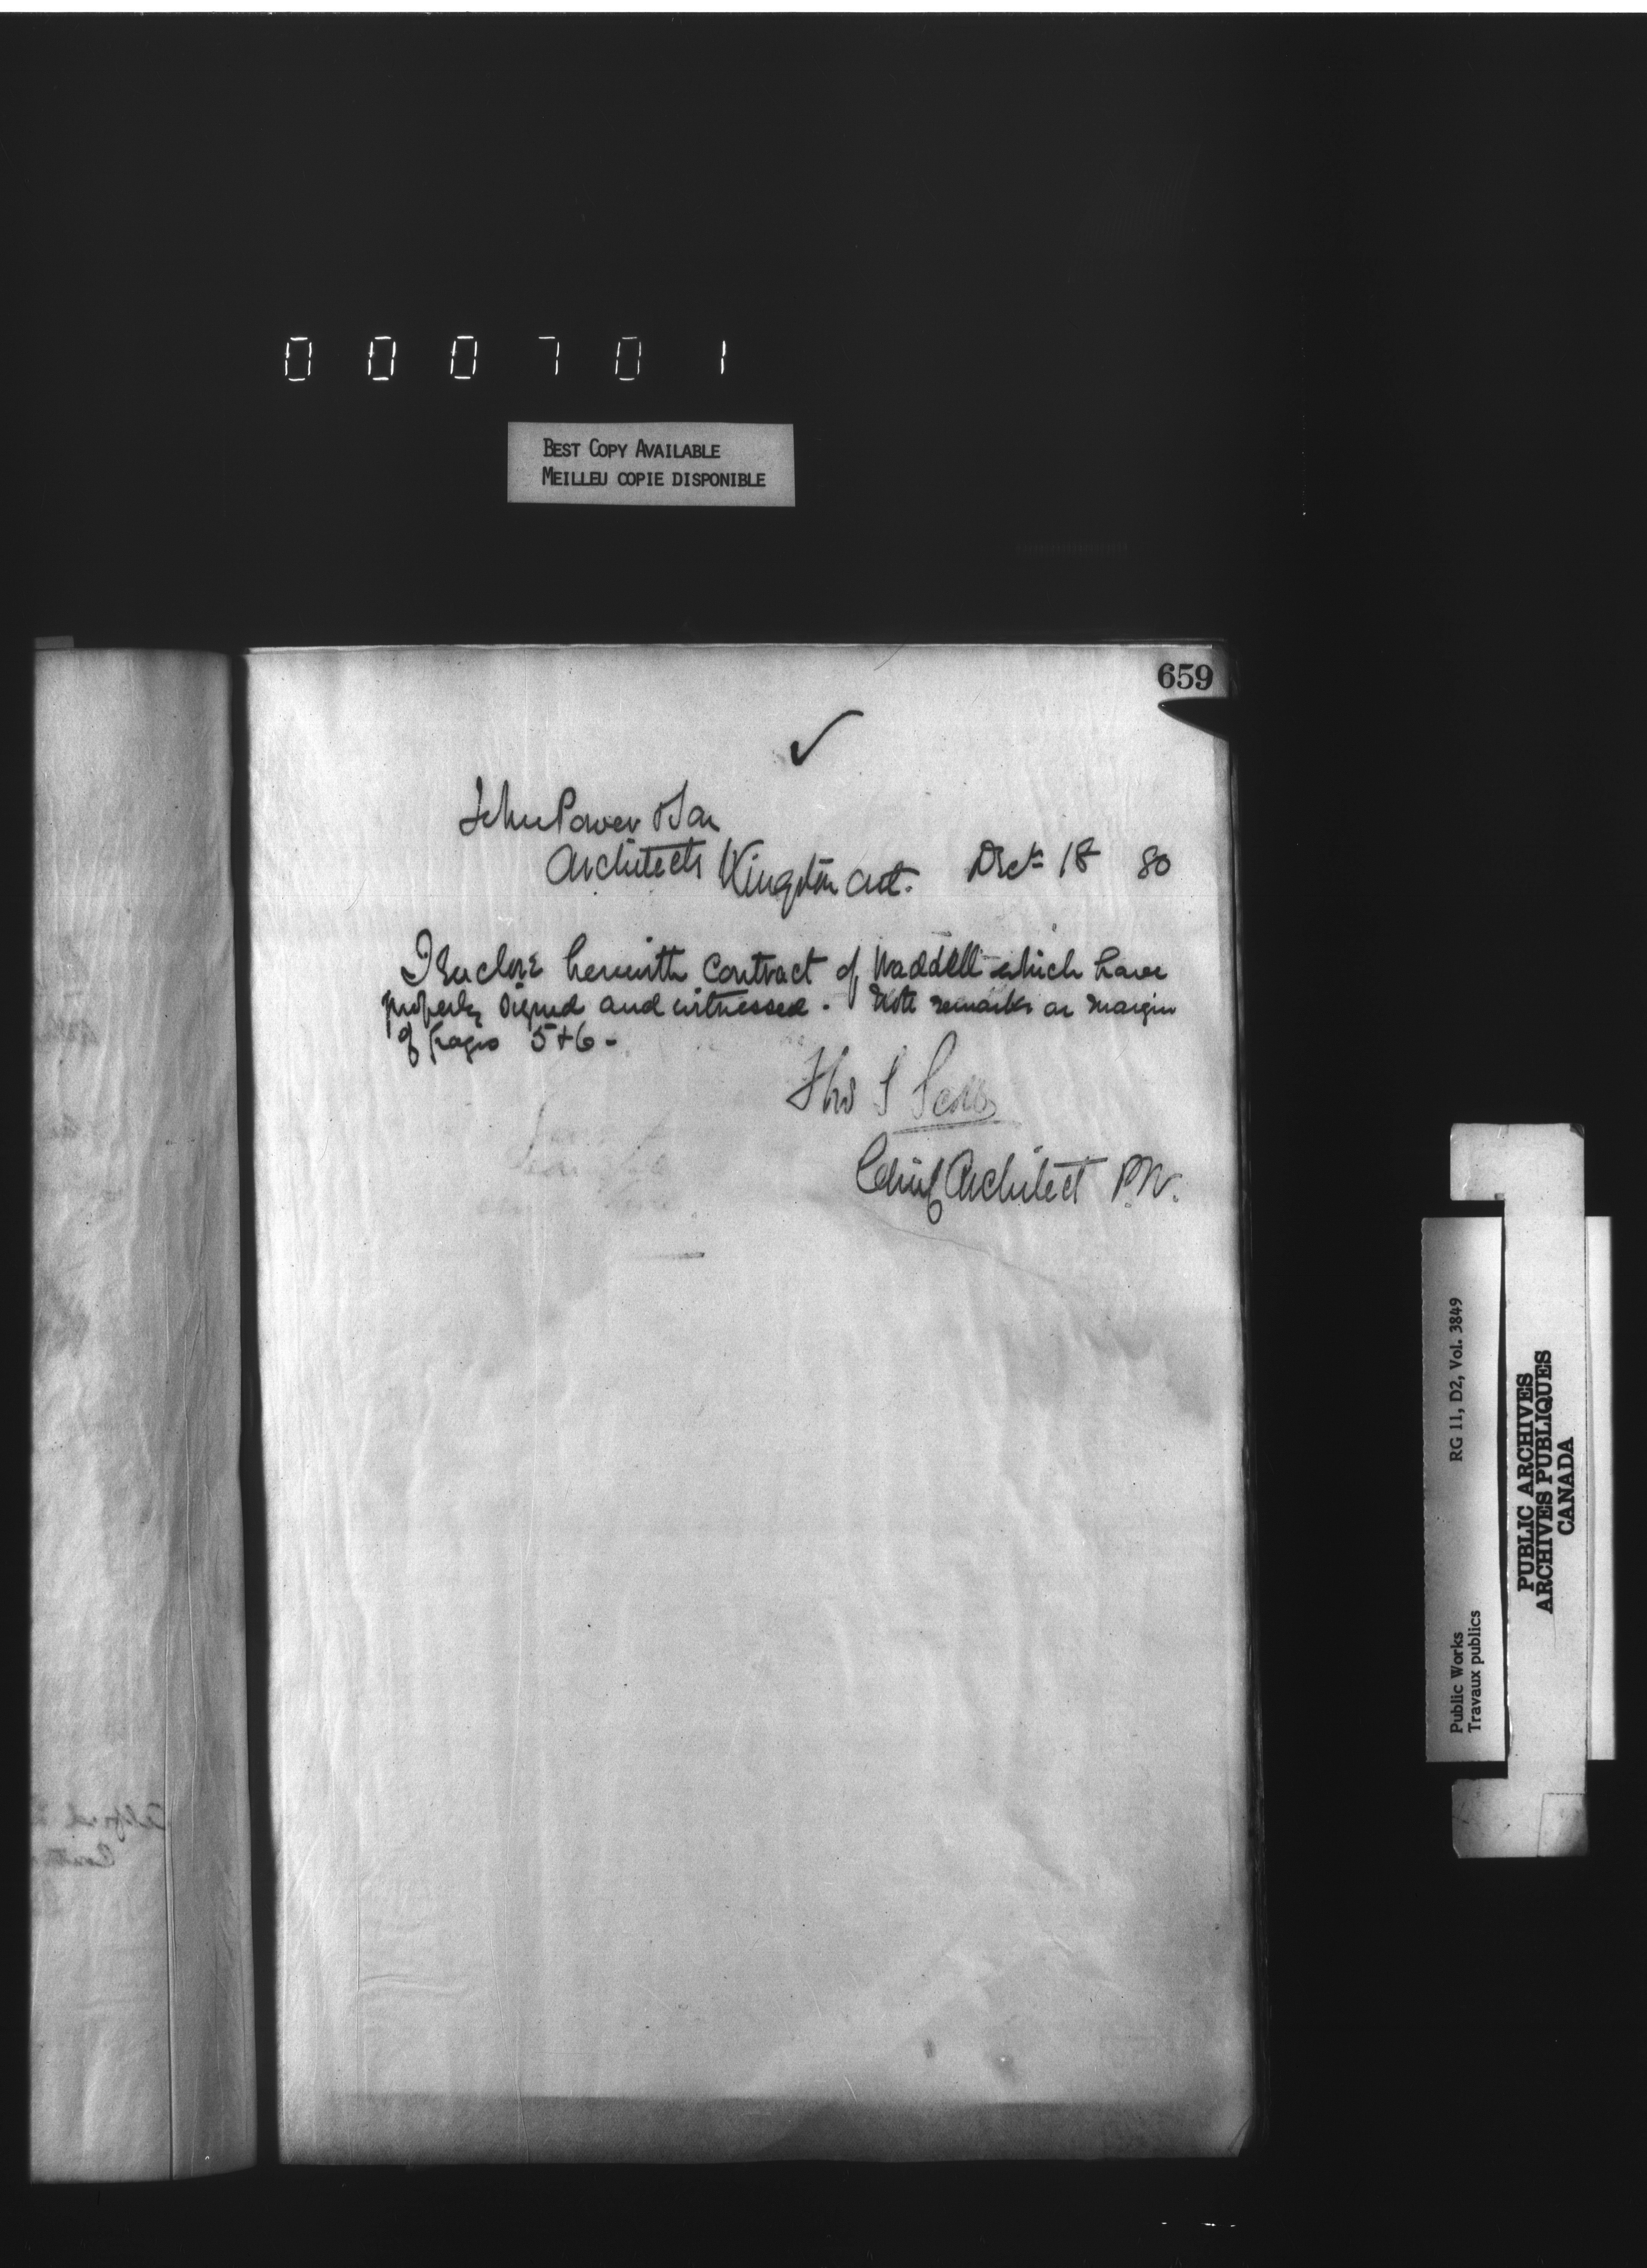 000701
BEST COPY AVAILABLE
MEILLEU COPIE DISPONIBLE
659
✓
John Power & Son
Architects Kingston Ont. Dec. 18 80
I Enclose herewith Contract of Waddell which have
properly signed and witnessed. Note remarks on margin
of pages 5 + 6 -
Thos S Scott
Chief Architect P.W.
Public Works
Travaux publics
RG 11, D2, Vol. 3849
PUBLIC ARCHIVES
ARCHIVES PUBLIQUES
CANADA